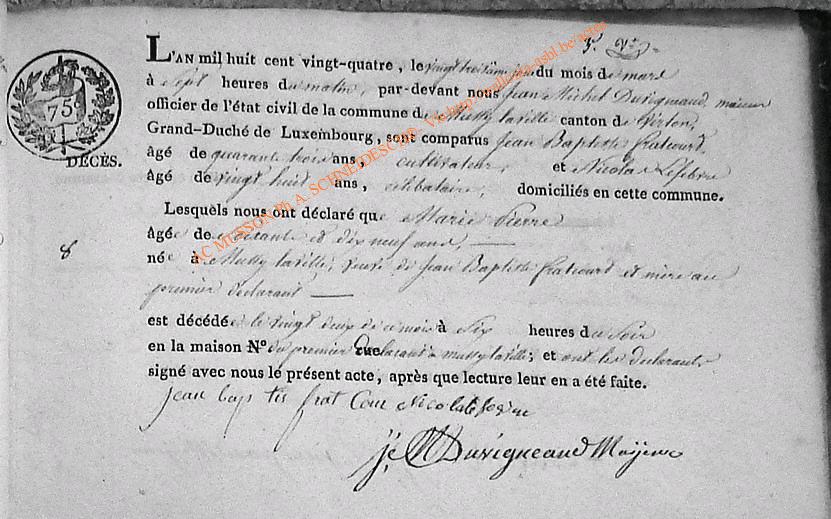 3. Vt
L'AN mil huit cent vingt-quatre, le vingt troisieme jour du mois de mars
à sept heures du matin, par-devant nous Jean Michel Duvigneaud, maieur
officier de l'état civil de la commune de Mussy la ville canton de Virton,
Grand-Duché de Luxembourg, sont comparus Jean Baptiste fratcourt,
âgé de quarante trois ans, cultivateur, et Nicolas Lefebvre
âgé de vingt huit ans, célibataire, domiciliés en cette commune.
75
DÉCÈS.
Lesquels nous ont déclaré que Marie Pierre
âgée de soixante et dix neuf ans,
8
née à Mussy la ville, veuve de Jean Baptiste fratcourt et mère au
premier declarant
est décédée le vingt deux de ce mois à six heures du soir
en la maison No du premier declarant à mussy la ville; et ont les declarants
signé avec nous le présent acte, après que lecture leur en a été faite.
jean bap tis frat Cour Nicola
jé M Duvigneaud Mayeur
AC MUSSON Ph A. SCHNEIDESCH Via http://gallica-asbl.be/actes